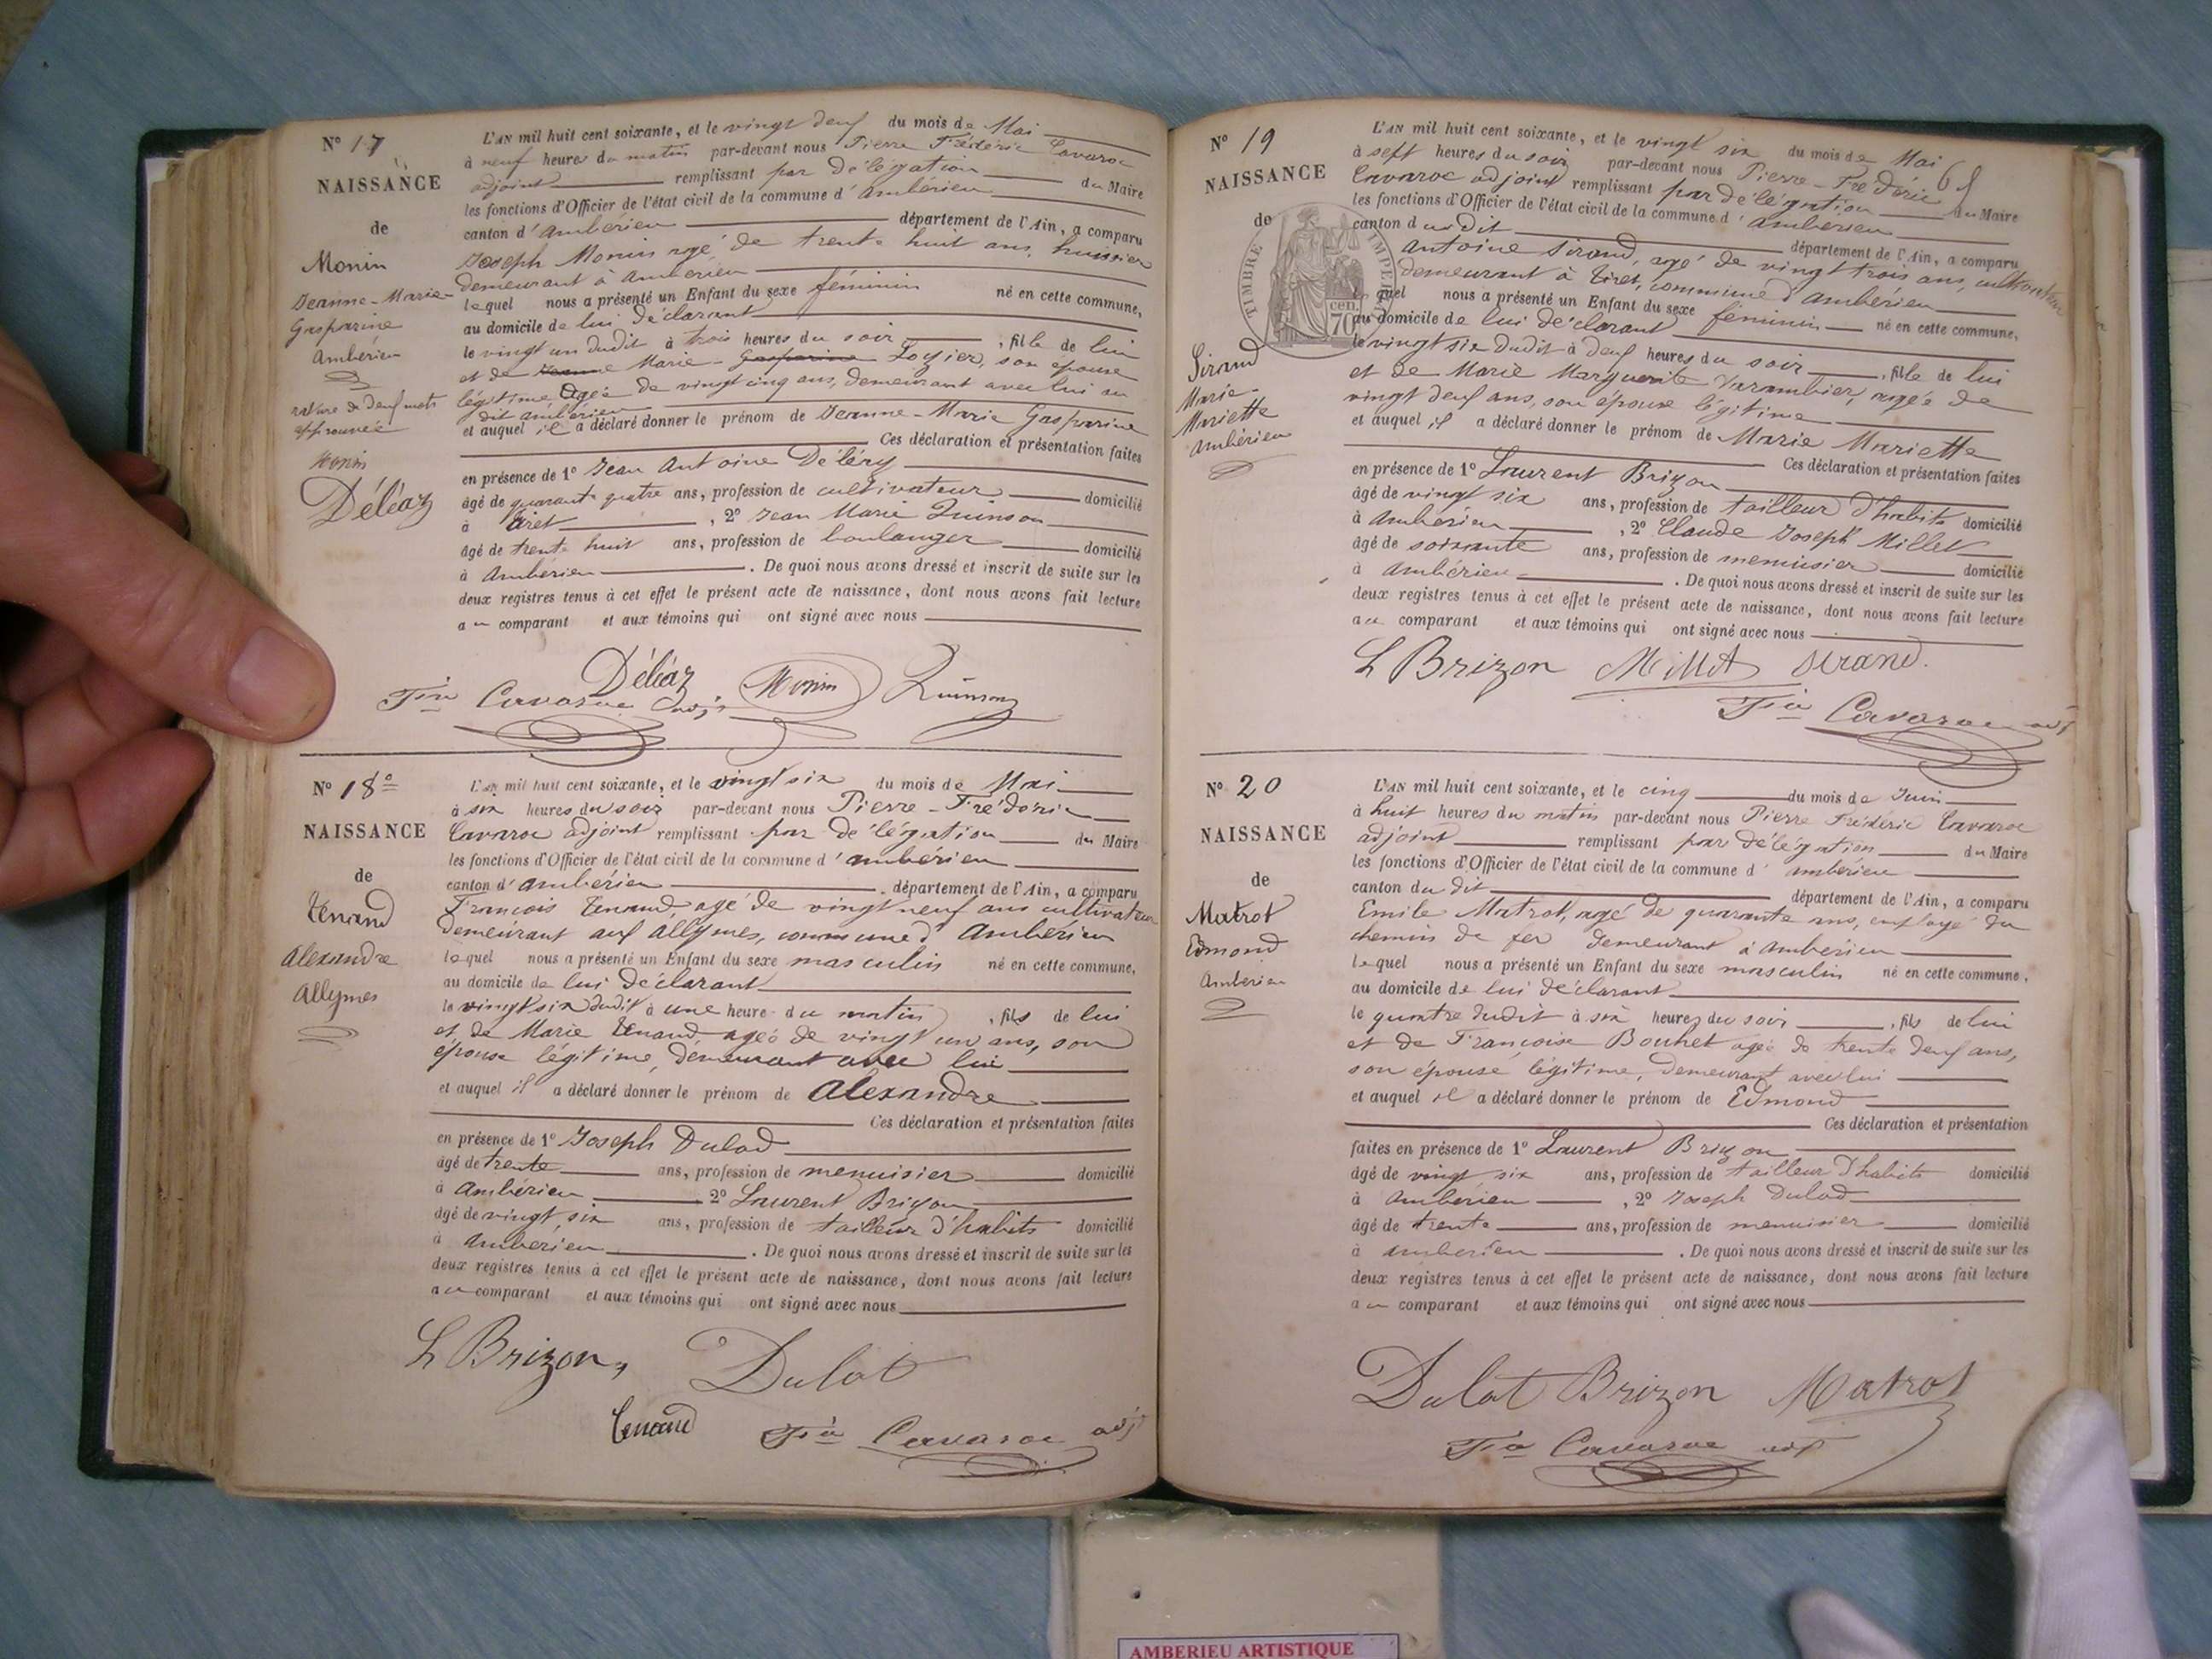 N° 17
NAISSANCE
de
Monin
Jeanne-Marie
Gasparine
Ambérieu
rature de deux mots
approuvée
Monin
Déléaz
L'AN mil huit cent soixante, et le vingt deux du mois de Mai
à neuf heures du matin par-devant nous Pierre Frédéric Cavaroc
adjoint remplissant par délégation du Maire
les fonctions d'Officier de l'état civil de la commune d'Ambérieu
canton d'Ambérieu département de l'Ain, a comparu
Joseph Monin agé de trente huit ans, huissier
demeurant à Ambérieu
lequel nous a présenté un Enfant du sexe féminin né en cette commune,
au domicile de lui déclarant
le vingt un dudit à trois heures du soir, fille de lui
et de Jeanne Marie-Gasparine Logier, son épouse
légitime agée de vingt cinq ans, demeurant avec lui au
dit Ambérieu
et auquel il a déclaré donner le prénom de Jeanne-Marie Gasparine
Ces déclaration et présentation faites
en présence de 1° Jean Antoine Déléry
âgé de quarante quatre ans, profession de cultivateur domicilié
à Tiret, 2° Jean Marie Quinson
âgé de trente huit ans, profession de boulanger domicilié
à Ambérieu. De quoi nous avons dressé et inscrit de suite sur les
deux registres tenus à cet effet le présent acte de naissance, dont nous avons fait lecture
au comparant et aux témoins qui ont signé avec nous
Déléaz Monin Quinson
Fic Cavaroc adj
N° 18°
NAISSANCE
de
Tenand
Alexandre
Allymes
L'AN mil huit cent soixante, et le vingt six du mois de Mai
à six heures du soir par-devant nous Pierre-Frédéric
Cavaroc adjoint remplissant par délégation du Maire
les fonctions d'Officier de l'état civil de la commune d'Ambérieu
canton d'Ambérieu, département de l'Ain, a comparu
François Tenand agé de vingt neuf ans cultivateur
demeurant aux Allymes, commune d'Ambérieu
lequel nous a présenté un Enfant du sexe masculin né en cette commune,
au domicile de lui déclarant
le vingt six dudit à une heure du matin, fils de lui
et de Marie Tenand, agée de vingt un ans, son
épouse légitime, demeurant avec lui
et auquel il a déclaré donner le prénom de Alexandre
Ces déclaration et présentation faites
en présence de 1° Joseph Dulad
âgé de trente ans, profession de menuisier domicilié
à Ambérieu 2° Laurent Brizon
âgé de vingt six ans, profession de tailleur d'habits domicilié
à Ambérieu. De quoi nous avons dressé et inscrit de suite sur les
deux registres tenus à cet effet le présent acte de naissance, dont nous avons fait lecture
au comparant et aux témoins qui ont signé avec nous
L Brizon, Dulat
Tenand Fic Cavaroc adj
N° 19
NAISSANCE
de
TIMBRE IMPERIAL
70 cen.
Sirand
Marie
Mariette
Ambérieu
L'AN mil huit cent soixante, et le vingt six du mois de Mai
à sept heures du soir par-devant nous Pierre-Frédéric
Cavaroc adjoint remplissant par délégation du Maire
les fonctions d'Officier de l'état civil de la commune d'Ambérieu
canton dudit département de l'Ain, a comparu
Antoine Sirand, agé de vingt trois ans, cultivateur
demeurant à Tiret, commune d'Ambérieu
lequel nous a présenté un Enfant du sexe féminin né en cette commune,
au domicile de lui déclarant
le vingt six dudit à deux heures du soir, fille de lui
et de Marie Marguerite Varambier, agée de
vingt deux ans, son épouse légitime
et auquel il a déclaré donner le prénom de Marie Mariette
Ces déclaration et présentation faites
en présence de 1° Laurent Brizon
âgé de vingt six ans, profession de tailleur d'habits domicilié
à Ambérieu, 2° Claude Joseph Millet
âgé de soixante ans, profession de menuisier domicilié
à Ambérieu. De quoi nous avons dressé et inscrit de suite sur les
deux registres tenus à cet effet le présent acte de naissance, dont nous avons fait lecture
au comparant et aux témoins qui ont signé avec nous
L Brizon Millet Sirand.
Fic Cavaroc adj
N° 20
NAISSANCE
de
Matrot
Edmond
Ambérieu
L'AN mil huit cent soixante, et le cinq du mois de Juin
à huit heures du matin par-devant nous Pierre Frédéric Cavaroc
adjoint remplissant par délégation du Maire
les fonctions d'Officier de l'état civil de la commune d'Ambérieu
canton du dit département de l'Ain, a comparu
Emile Matrot, agé de quarante ans, employé du
chemin de fer demeurant à Ambérieu
lequel nous a présenté un Enfant du sexe masculin né en cette commune,
au domicile de lui déclarant
le quatre dudit à six heures du soir, fils de lui
et de Françoise Bouhet agée de trente deux ans,
son épouse légitime, demeurant avec lui
et auquel il a déclaré donner le prénom de Edmond
Ces déclaration et présentation
faites en présence de 1° Laurent Brizon
âgé de vingt six ans, profession de tailleur d'habits domicilié
à Ambérieu, 2° Joseph Dulad
âgé de trente ans, profession de menuisier domicilié
à Ambérieu. De quoi nous avons dressé et inscrit de suite sur les
deux registres tenus à cet effet le présent acte de naissance, dont nous avons fait lecture
au comparant et aux témoins qui ont signé avec nous
Dulat Brizon Matrot
Fic Cavaroc adj
AMBERIEU ARTISTIQUE